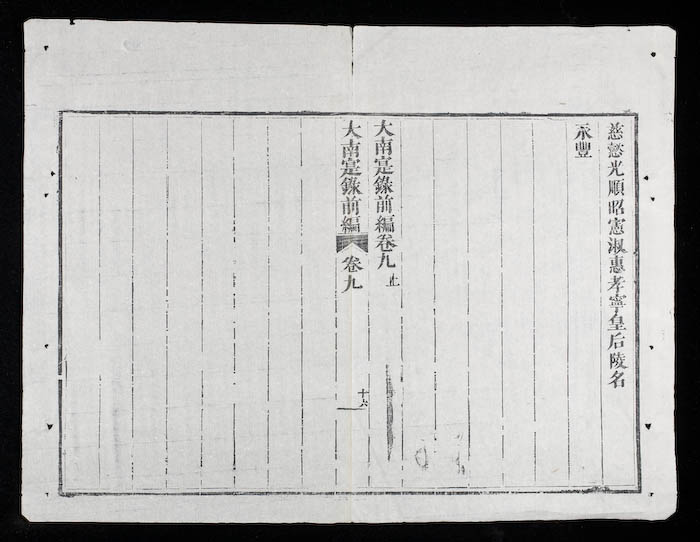 慈懿光順昭憲淑惠孝寧皇后陵名
永豐
大南寔錄前編卷九止
大南寔錄前編
卷九
十六